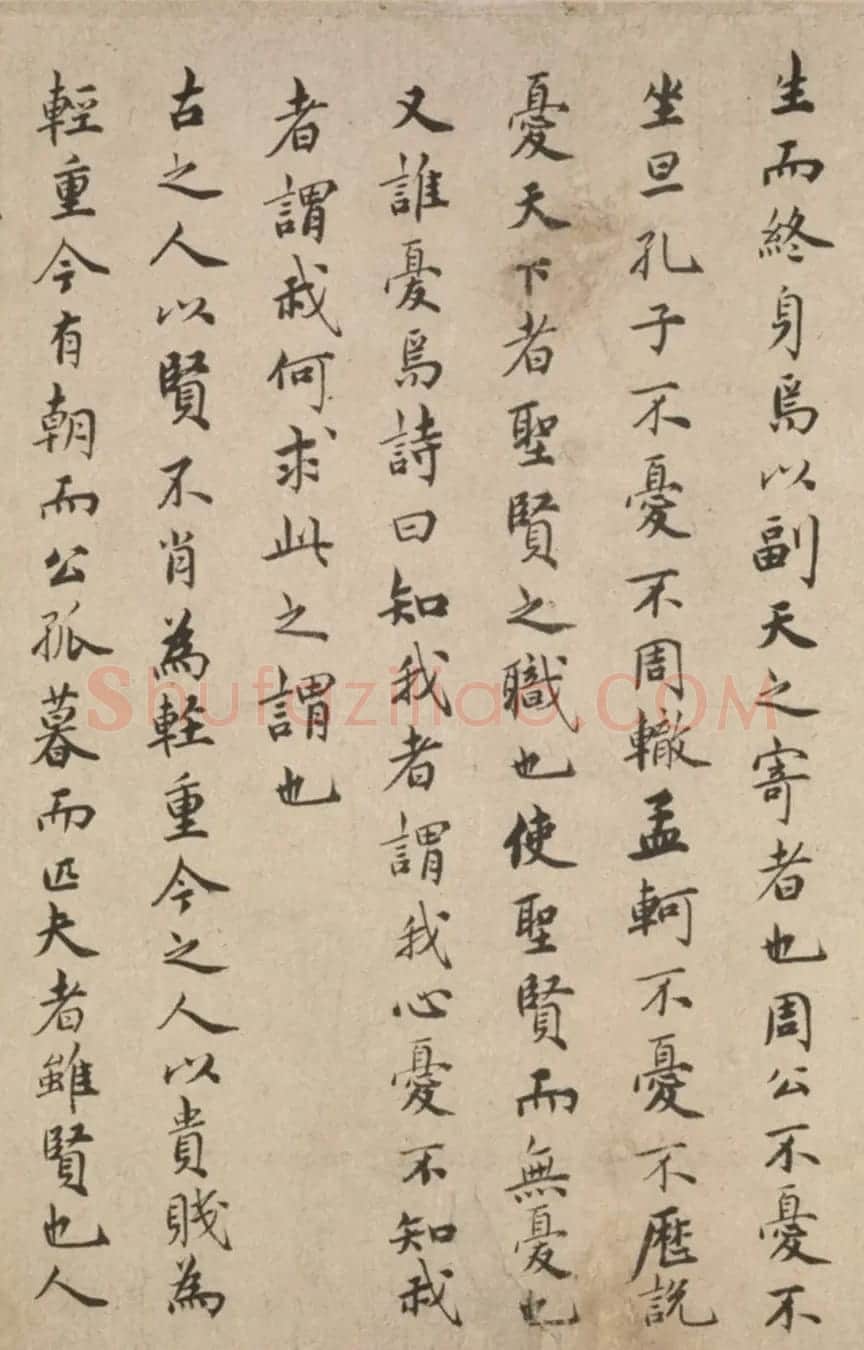 生而終身焉以副天之寄者也周公不憂不
坐旦孔子不憂不周轍孟軻不憂不歷說
憂天下者聖賢之職也使聖賢而無憂也
又誰憂焉詩曰知我者謂我心憂不知我
者謂我何求此之謂也
古之人以賢不肖為輕重今之人以貴賤為
輕重今有朝而公孤暮而匹夫者雖賢也人
Shufaziliao.COM